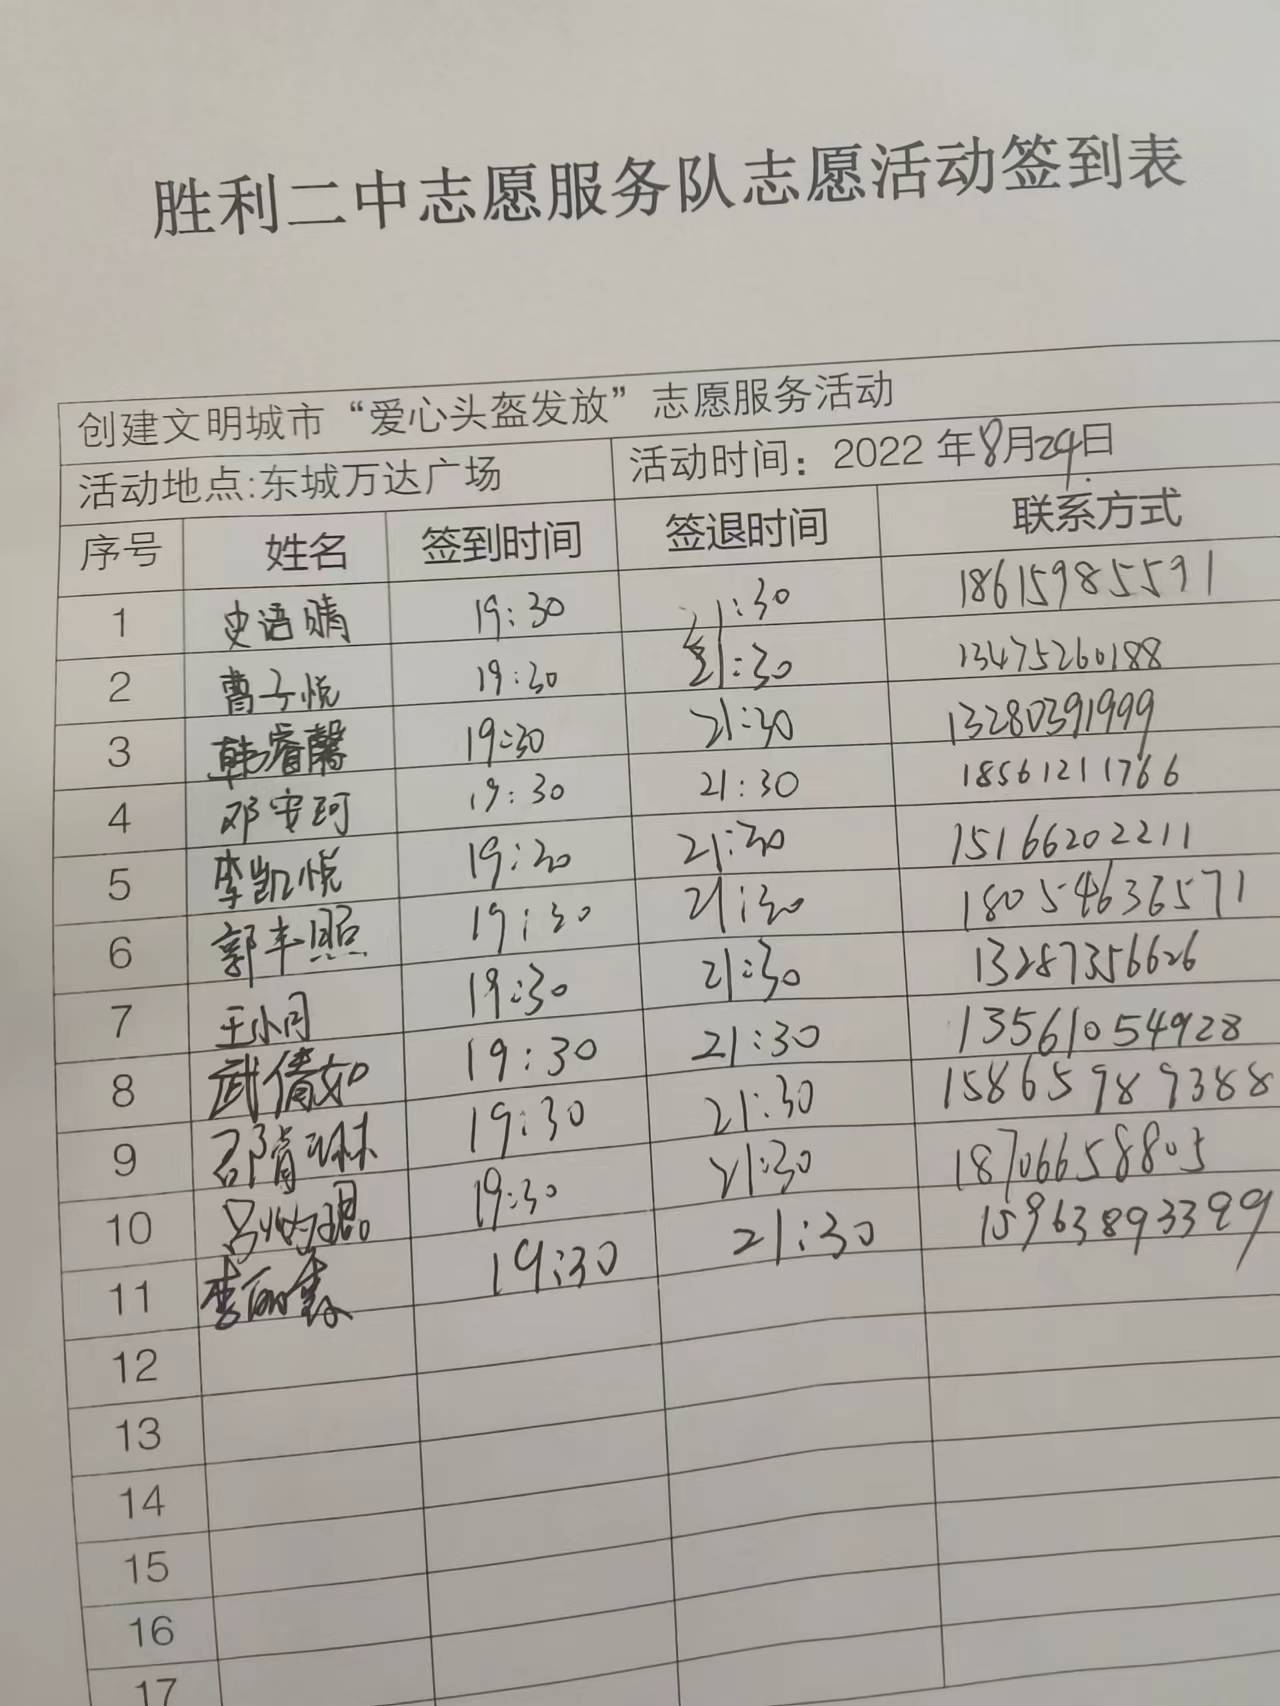 胜利二中志愿服务队志愿活动签到表
创建文明城市“爱心头盔发放”志愿服务活动
活动地点:东城万达广场 活动时间：2022年8月29日
序号 姓名 签到时间 签退时间 联系方式
1 史语晴 19:30 21:30 18615985591
2 曹子悦 19:30 21:30 13475260188
3 韩睿馨 19:30 21:30 13280391999
4 邓安珂 19:30 21:30 18561211766
5 李凯悦 19:30 21:30 15166202211
6 郭丰照 19:30 21:30 18054636571
7 王小同 19:30 21:30 13287356626
8 武倩如 19:30 21:30 13561054928
9 邵育琳 19:30 21:30 15865989388
10 19:30 21:30 18706658805
11 19:30 21:30 15963893399
12
13
14
15
16
17